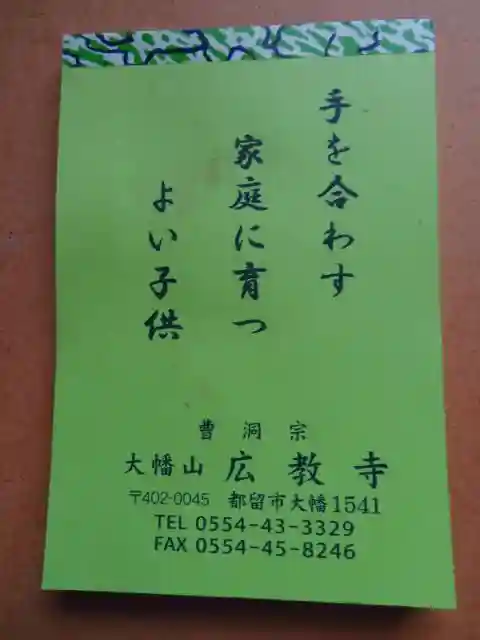 手を合わす
家庭に育つ
よい子供
曹洞宗
大幡山 広教寺
〒402-0045 都留市大幡1541
TEL 0554-43-3329
FAX 0554-45-8246